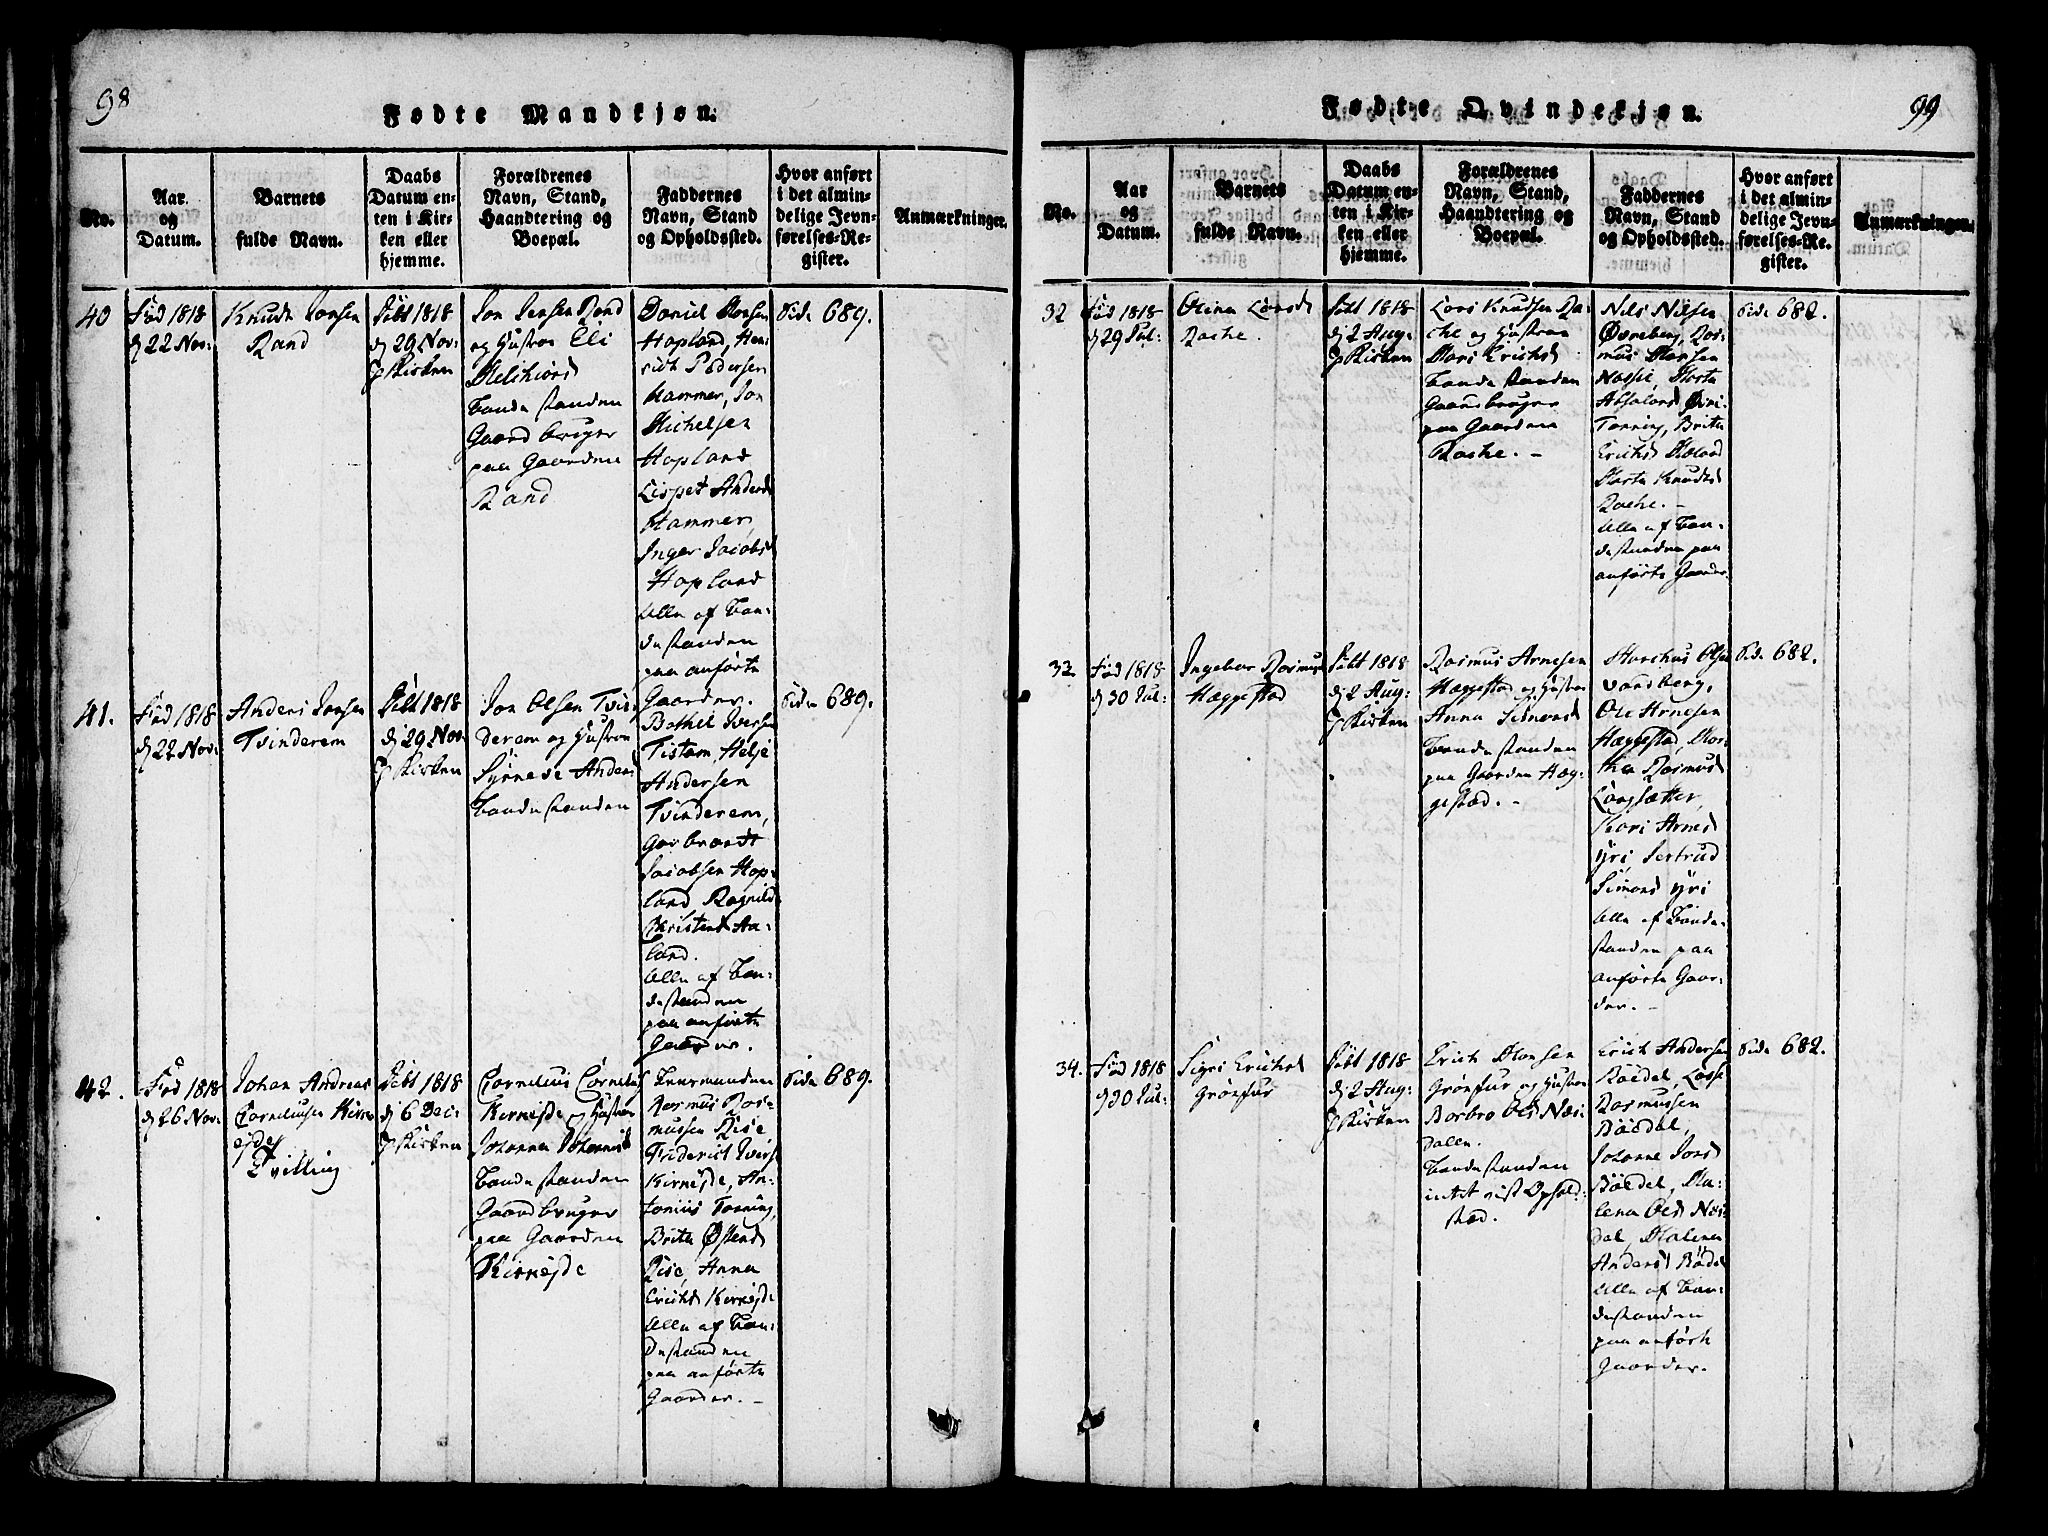 98
Fødte Mandkjøn.
No.
Aar
og
Datum.
Barnets
fulde Navn.
Daabs
Datum en-
ten i Kir-
ken eller
hjemme.
Forældrenes
Navn, Stand,
Haandtering og
Boepæl.
Faddernes
Navn, Stand
og Opholdssted.
Hvor anført
i det almin-
delige Jevn-
førelses-Re-
gister.
Anmærkninger.
40
Fød 1818
d 22 Nov:
Knud Jonsen
Rand
Døbt 1818
d 29 Nov:
i Kirken
Jon Jensen Rand
og Hustroe Eli
Melchiors
bondestanden
Gaardbruger
paa Gaarden
Rand
Daniel Monsen
Hopland, Hen-
rich Pedersen
Hammer, Jon
Michelsen
Hopland
Lispet Anders
Hammer,
Inger Jacobsd
Hopland
Alle af bon-
destanden
paa anførte
Gaarder.
Side 689.
41.
Fød 1818
d 22 Nov:
Anders Jonsen
Tvinderem
Døbt 1818
d 29 Nov:
i Kirken
Jon Olsen Tvin-
derem og Hustroe
Synneve Anders
bondestanden
Bothel Iversen
Tistam, Helje
Andersen
Tvinderem,
Garbrandt
Jacobsen Hop-
land Ragnild
Kristens Aa-
land.
Alle af bon-
destanden
paa anførte
Gaarder.
Side 689.
42.
Fød 1818
d 26 Nov:
Johan Andreas
Corneliusen Kirn-
ejde
Tvilling
Døbt 1818
d 6 Dec:
i Kirken
Cornelius Cornelius
Kirnejde og Hustroe
Johanna Johannis
bondestanden
Gaardbruger
paa Gaarden
Kirnejde
Rasmus Ras-
mussen Rise
Friderich Ivers
Kirnejde, An-
tonius Tanning,
Brite Østens
Rise, Anna
Erichs Kirnejde
Alle af bon-
destanden
paa anførte
Gaarder. –
Side 689.
99
Fødte Qvindekjøn.
No.
Aar
og
Datum.
Barnets
fulde Navn.
Daabs
Datum en-
ten i Kir-
ken eller
hjemme.
Forældrenes
Navn, Stand,
Haandtering og
Boepæl.
Faddernes
Navn, Stand
og Opholdssted.
Hvor anført
i det almin-
delige Jevn-
førelses-Re-
gister.
Anmærkninger.
32
Fød 1818
d 29 Jul:
Olina Larsd
Rache.
Døbt 1818
d 2 Aug:
i Kirken
Lars Knudsen Ra-
che og Hustroe
Mari Erichs
bondestanden
Gaardbruger
paa Gaarden
Rache. –
Nils Nilsen
Øvreberg, Ras-
mus Monsen
Marta
Absalons
Tanning, Brite
Erichs
Marta Knudts
Rache. –
Alle af bon-
destanden paa
anførte Gaarder.
Side 682.
33.
Fød 1818
d 30 Jul:
Ingebor Rasmus
Hæggestad
Døbt 1818
d 2 Aug:
i Kirken
Rasmus Arnesen
Hæggestad og Hustroe
Anna Simons
bondestanden
paa Gaarden Hæg-
gestad. –
Marchus Olsen
Vardberg,
Ole Arnesen
Hæggestad, Mar-
the Rasmus
Langsætter,
Kari Arnes
Yri Gertrud
Simons Yri
Alle af bonde-
standen paa
anførte Gaar-
der. –
Side 682.
34.
Fød 1818
d 30 Jul:
Sigri Erichs
Grønfur
Døbt 1818
d 2 Aug:
i Kirken
Erich Monsen
Grønfur og Hustroe
Barbro Ols Næs-
dalen.
bondestanden
intet vist Ophold-
sted.
Erich Andersen
Bødal, Lasse
Rasmussen
Bødal,
Johanne Jons
Bødal, Ma-
lena Ols Næs-
dal, Malena
Anders Bødal
Alle af bon-
destanden
paa anførte
Gaarder.
Side 682.